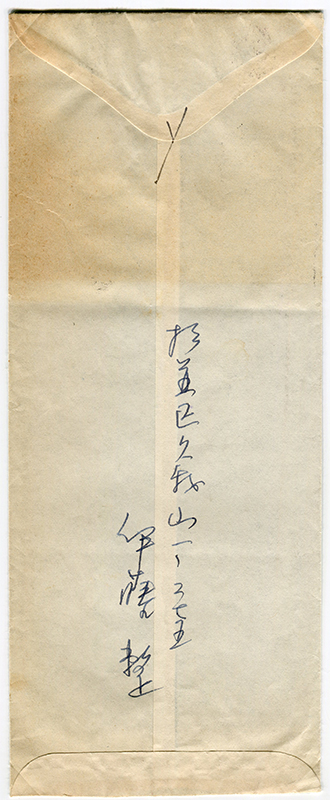 〆
杉並区久我山一ノ二七五
伊藤整